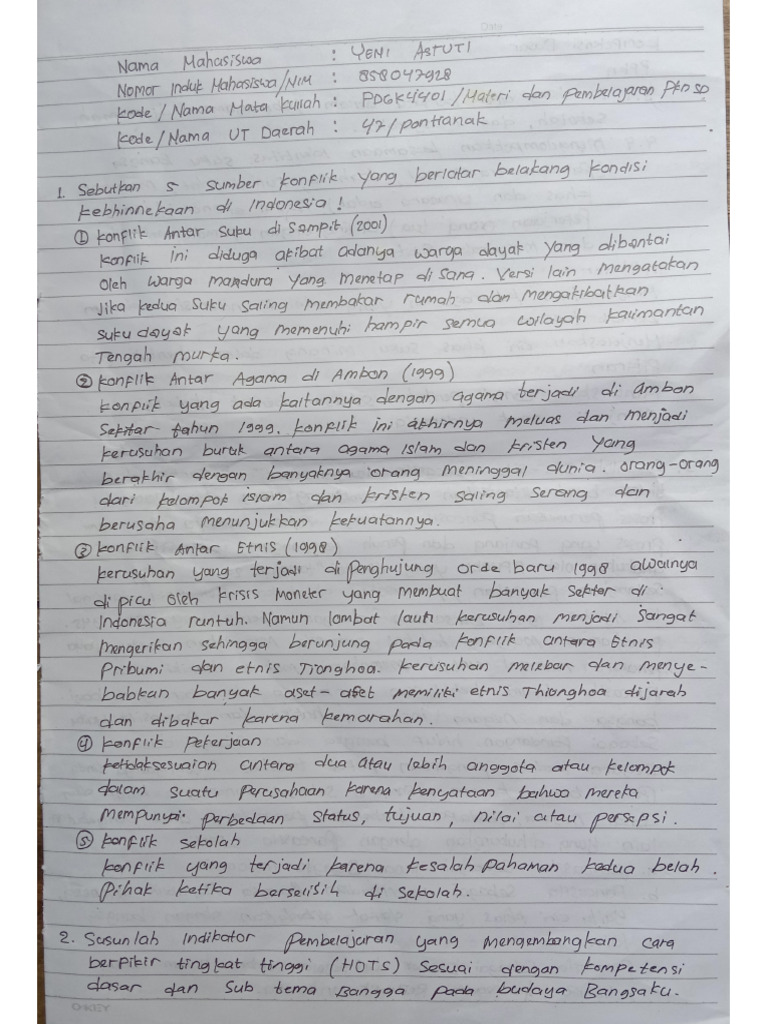 Nama Mahasiswa : YENI ASTUTI
Nomor Induk Mahasiswa/NIM : 858047928
Kode / Nama Mata Kuliah : PDGK4401 / Materi dan Pembelajaran PKn SD
Kode / Nama UT Daerah : 47 / Pontianak
1. Sebutkan 5 sumber konflik yang berlatar belakang kondisi
kebhinnekaan di Indonesia !
① Konflik Antar Suku di Sampit (2001)
Konflik ini diduga akibat adanya warga dayak yang dibantai
oleh warga mandura yang menetap di sana. Versi lain mengatakan
Jika kedua suku saling membakar rumah dan mengakibatkan
suku dayak yang memenuhi hampir semua wilayah kalimantan
Tengah murka.
② Konflik Antar Agama di Ambon (1999)
Konflik yang ada kaitannya dengan agama terjadi di ambon
Sekitar tahun 1999. Konflik ini akhirnya meluas dan menjadi
kerusuhan buruk antara agama Islam dan kristen yang
berakhir dengan banyaknya orang meninggal dunia. orang-orang
dari kelompok islam dan kristen saling serang dan
berusaha menunjukkan kekuatannya.
③ Konflik Antar Etnis (1998)
kerusuhan yang terjadi di penghujung orde baru 1998 awalnya
di picu oleh krisis moneter yang membuat banyak sektor di
Indonesia runtuh. Namun lambat laun kerusuhan menjadi sangat
mengerikan sehingga berunjung pada konflik antara Etnis
Pribumi dan etnis Tionghoa. kerusuhan melebar dan menye-
babkan banyak aset-aset memiliki etnis Thionghoa dijarah
dan dibakar karena kemarahan.
④ Konflik Pekerjaan
ketidaksesuaian antara dua atau lebih anggota atau kelompok
dalam suatu perusahaan karena kenyataan bahwa mereka
mempunyai perbedaan status, tujuan, nilai atau persepsi.
⑤ Konflik sekolah
konflik yang terjadi karena kesalah pahaman kedua belah
Pihak ketika berselisih di sekolah.
2. Susunlah Indikator Pembelajaran yang mengembangkan cara
berpikir tingkat tinggi (HOTS) sesuai dengan kompetensi
dasar dan Sub tema Bangga pada budaya Bangsaku.